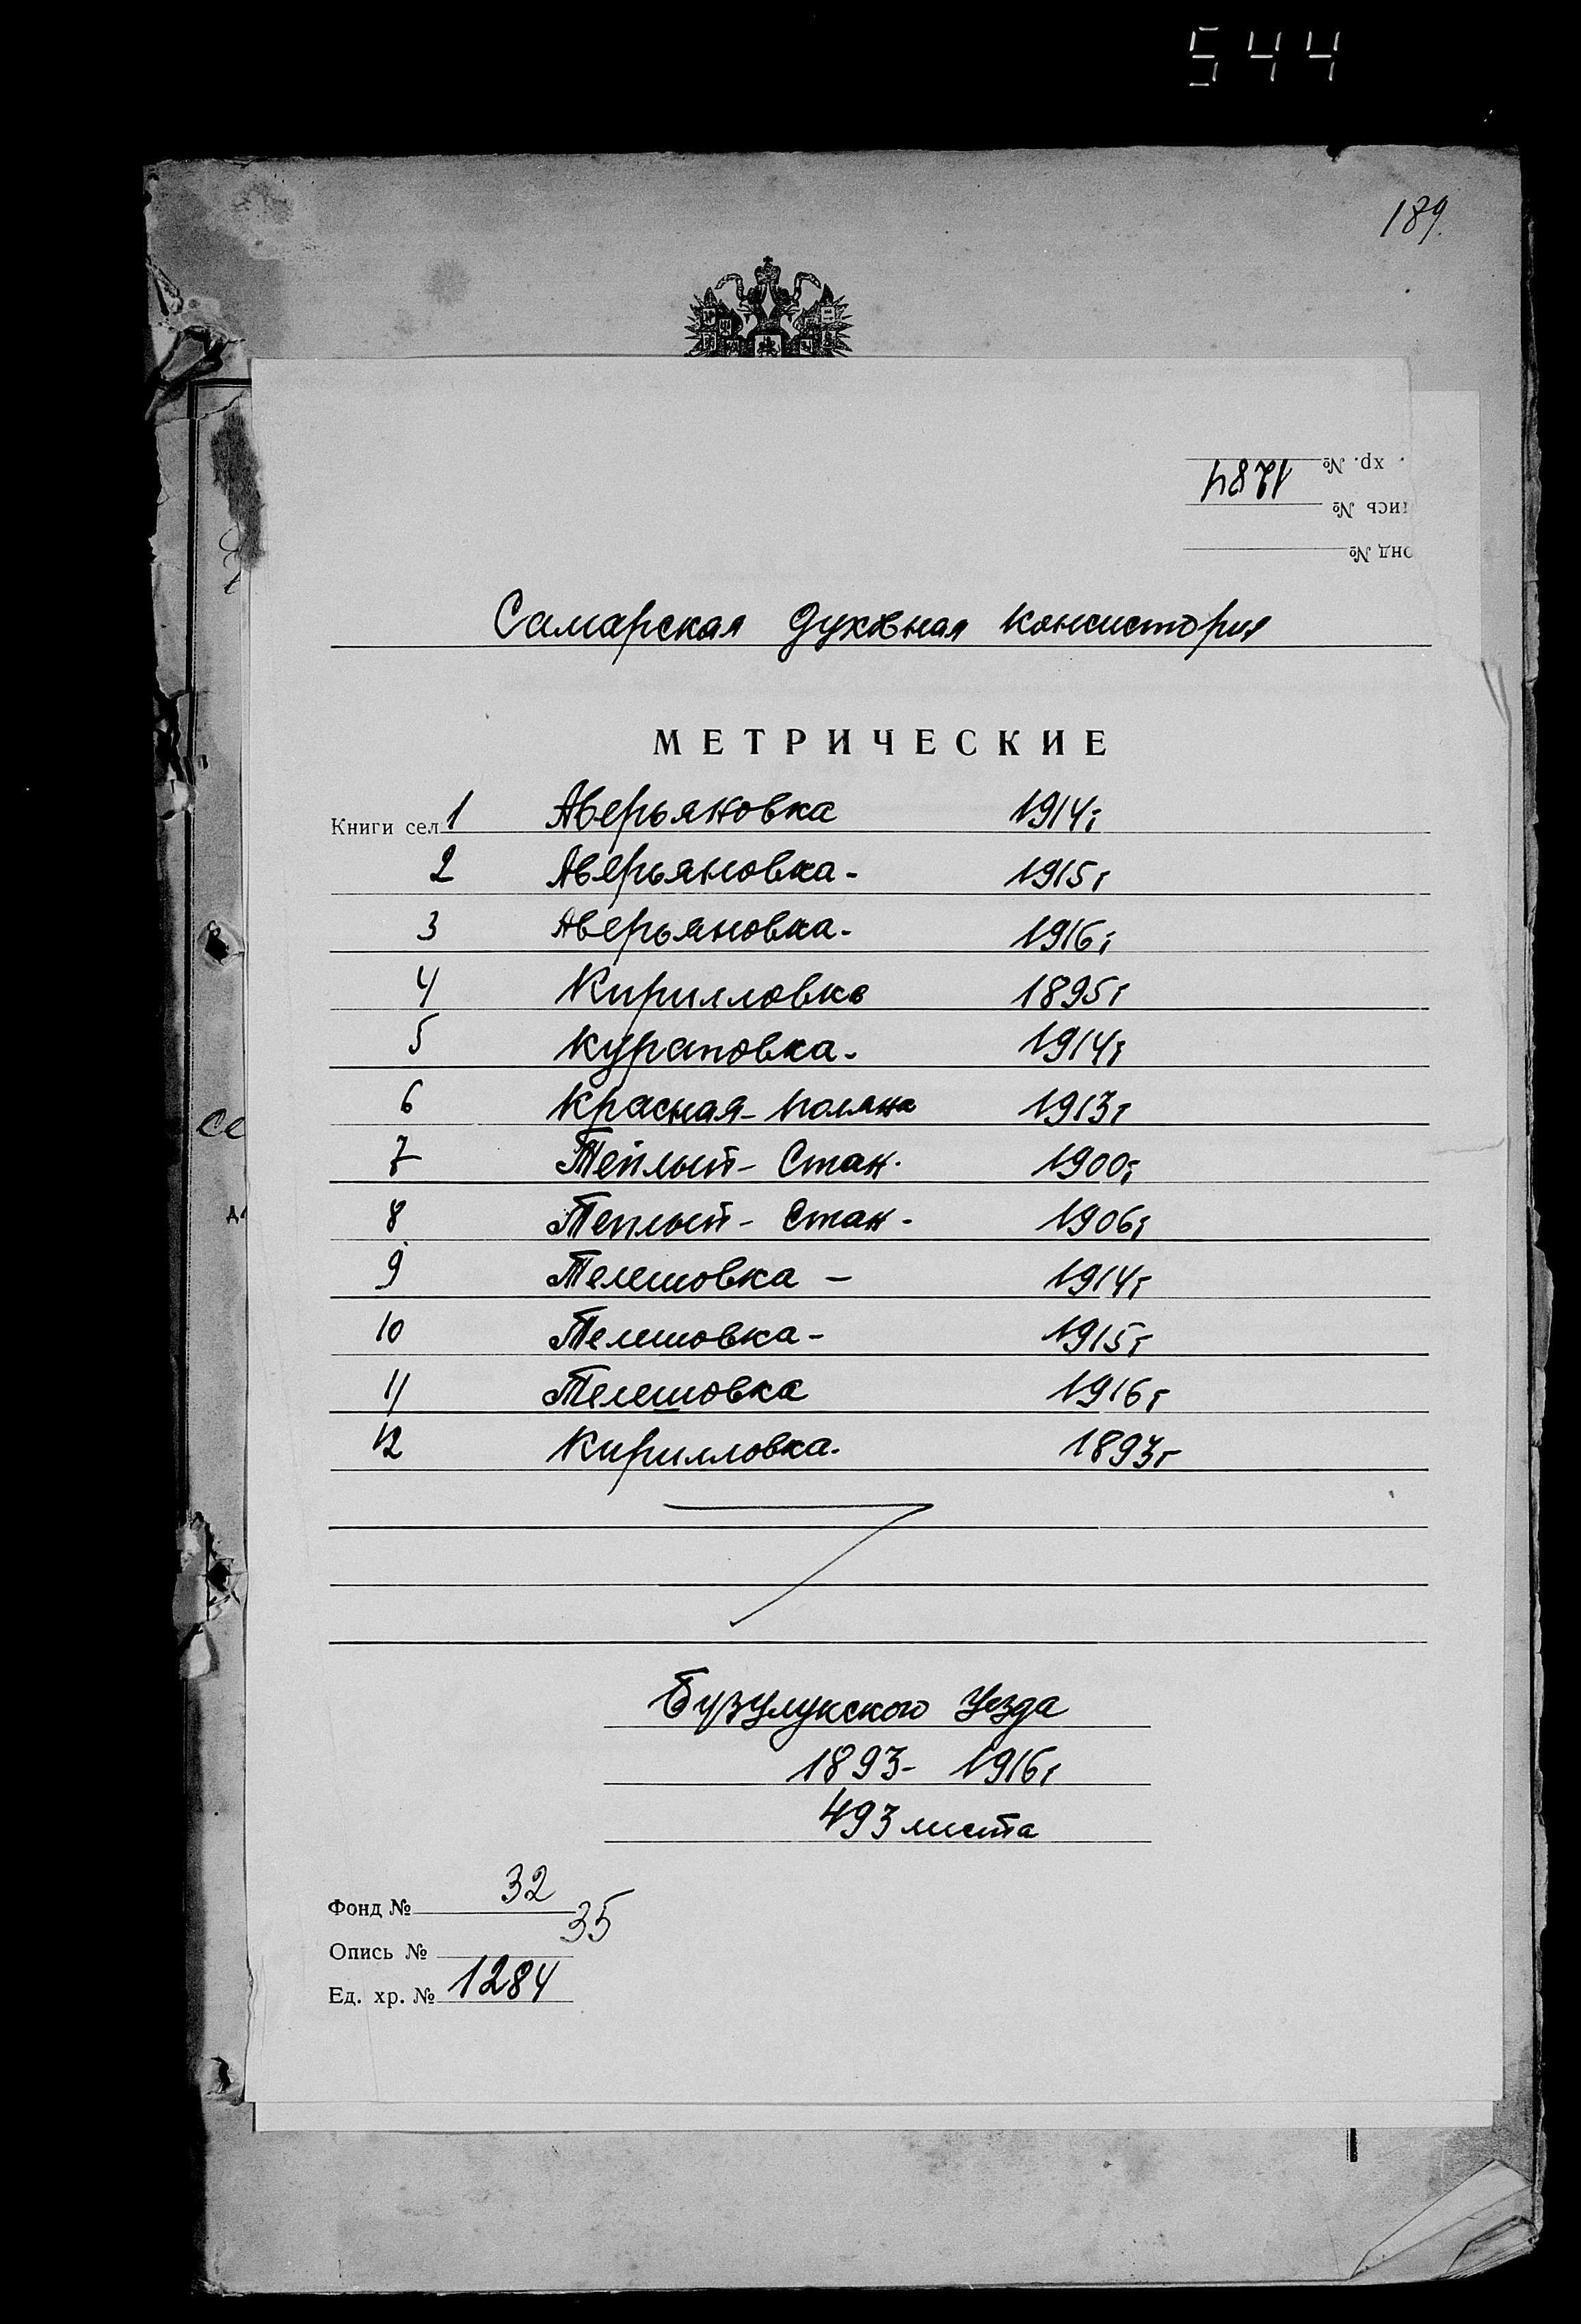 544
189.
. хр. № 1284
пись №
онд №
Самарская духовная консистория
МЕТРИЧЕСКИЕ
Книги сел 1 Аверьяновка 1914г
2 Аверьяновка- 1915г
3 Аверьяновка- 1916г
4 Кирилловка 1895г
5 Курапов​ка- 1914г
6 Красная-поляна 1913г
7 Тёплый-Стан. 1900г
8 Теплый-Стан- 1906г
9 Телешовка - 1914г
10 Телешовка- 1915г
11 Телешовка 1916г
12 Кирилловка. 1893г
Бузулукского Уезда
1893- 1916г
493 листа
Фонд № 32
Опись № 35
Ед. хр. № 1284